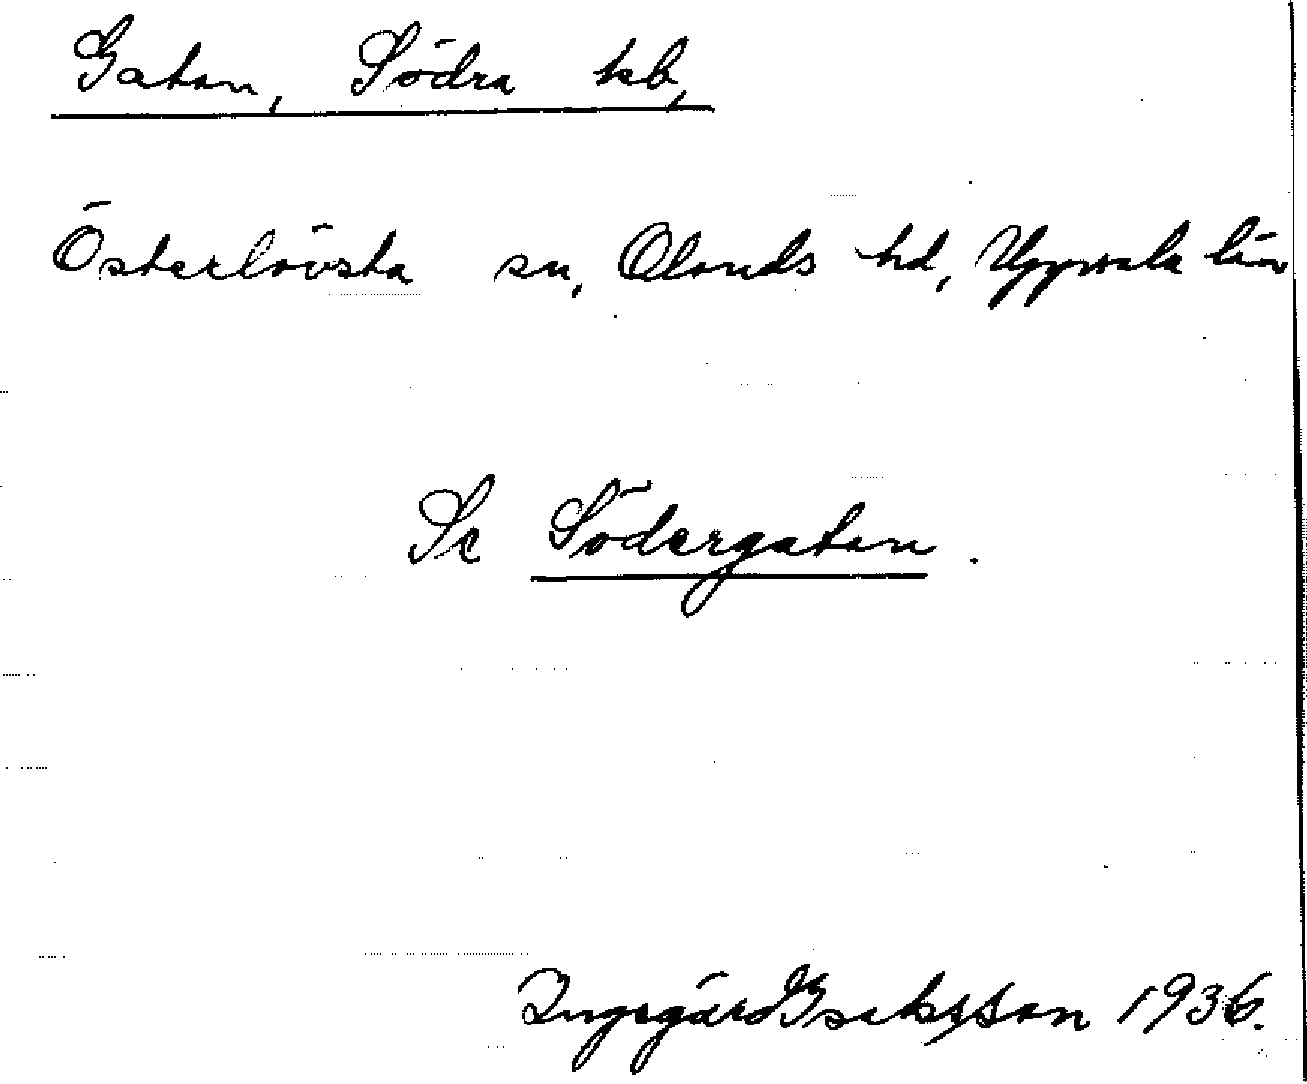 Gatan, Södra hsb,
Österlövsta sn, Olands hd, Uppsala län
Se Södergatan.
Ingegärd Isaksson 1936.